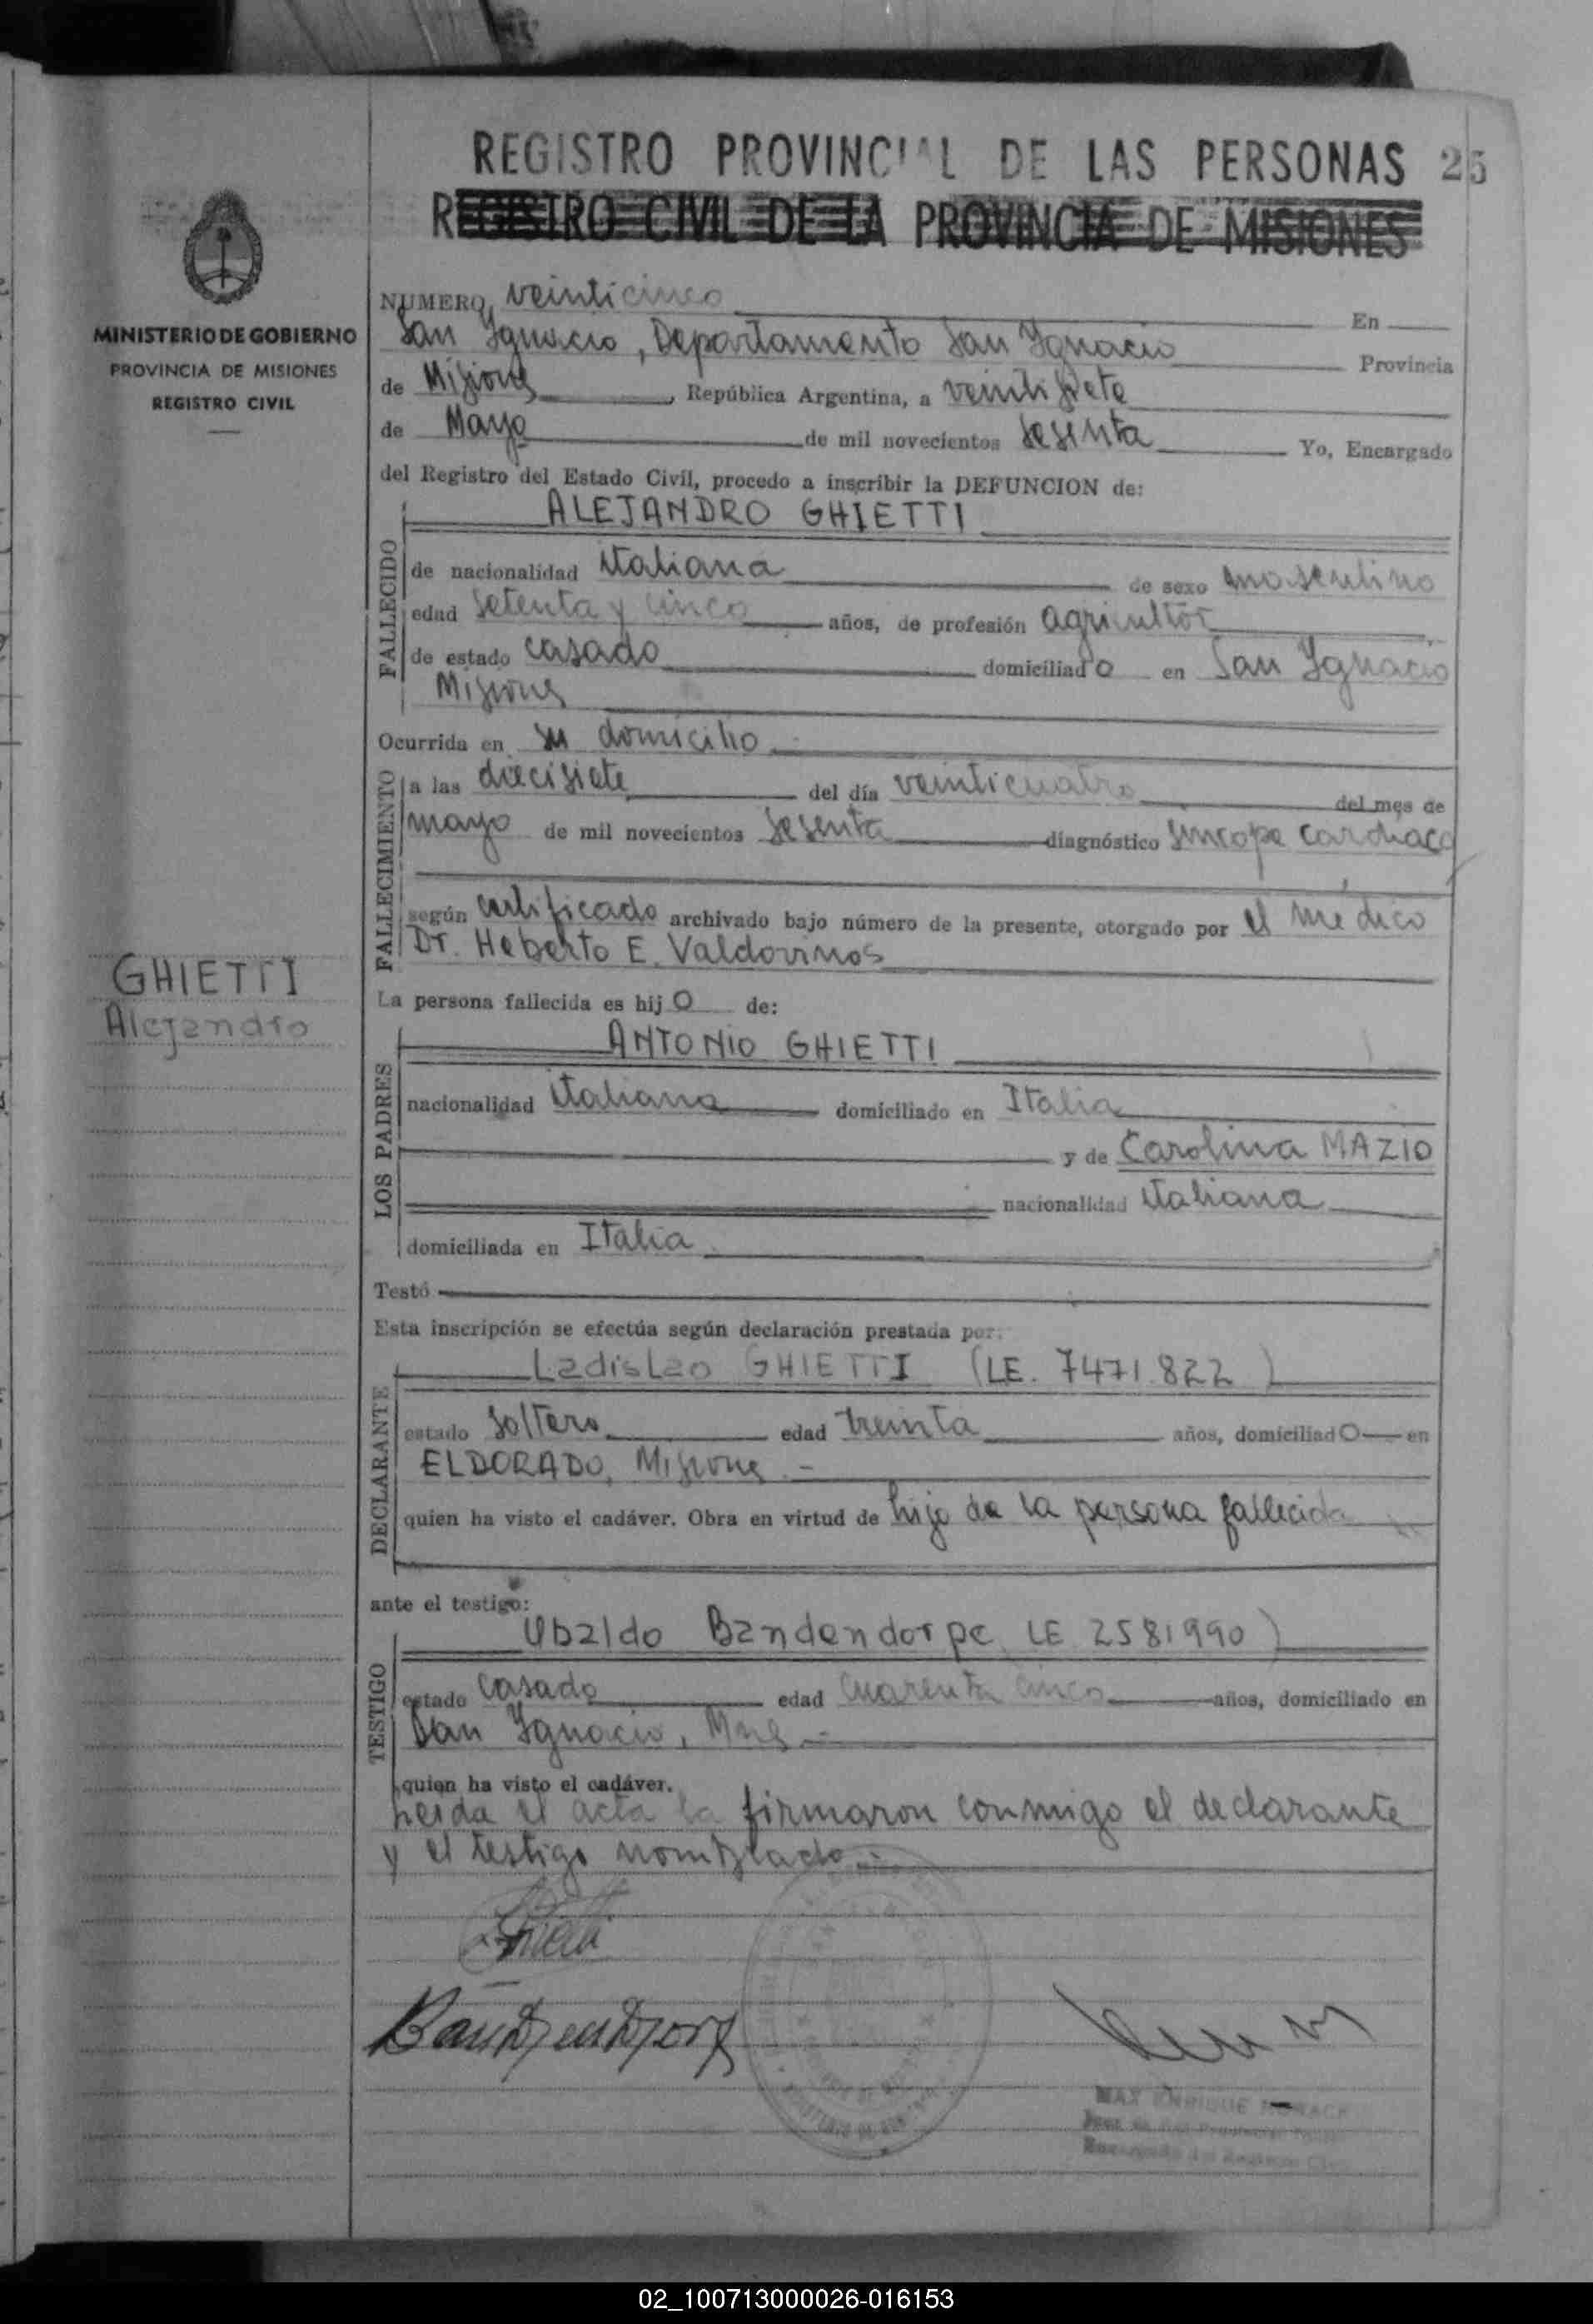 REGISTRO PROVINCIAL DE LAS PERSONAS 25
REGISTRO CIVIL DE LA PROVINCIA DE MISIONES
MINISTERIO DE GOBIERNO
PROVINCIA DE MISIONES
REGISTRO CIVIL
NUMERO veinticinco En
San Ignacio, Departamento San Ignacio Provincia
de Misiones, República Argentina, a veintisiete
de Mayo de mil novecientos sesenta Yo, Encargado
del Registro del Estado Civil, procedo a inscribir la DEFUNCION de:
FALLECIDO
ALEJANDRO GHIETTI
de nacionalidad italiana de sexo masculino
edad setenta y cinco años, de profesión agricultor
de estado casado domiciliado en San Ignacio
Misiones
Ocurrida en su domicilio
FALLECIMIENTO
a las diecisiete del día veinticuatro del mes de
mayo de mil novecientos sesenta diagnóstico síncope cardíaco
según certificado archivado bajo número de la presente, otorgado por el médico
Dr. Heberto E. Valdovinos
GHIETTI
Alejandro
La persona fallecida es hijo de:
LOS PADRES
ANTONIO GHIETTI
nacionalidad italiana domiciliado en Italia
y de Carolina MAZIO
nacionalidad italiana
domiciliada en Italia
Testó
Esta inscripción se efectúa según declaración prestada por:
DECLARANTE
Ladislao GHIETTI (LE. 7471.822)
estado soltero edad treinta años, domiciliado en
ELDORADO, Misiones.-
quien ha visto el cadáver. Obra en virtud de hijo de la persona fallecida
ante el testigo:
TESTIGO
Ubaldo Bandendorpe LE 2581990)
estado casado edad cuarenta cinco años, domiciliado en
San Ignacio, Mnes.-
quien ha visto el cadáver.
Leida el acta la firmaron conmigo el declarante
y el testigo nombrado.-
MAX ENRIQUE
02_100713000026-016153